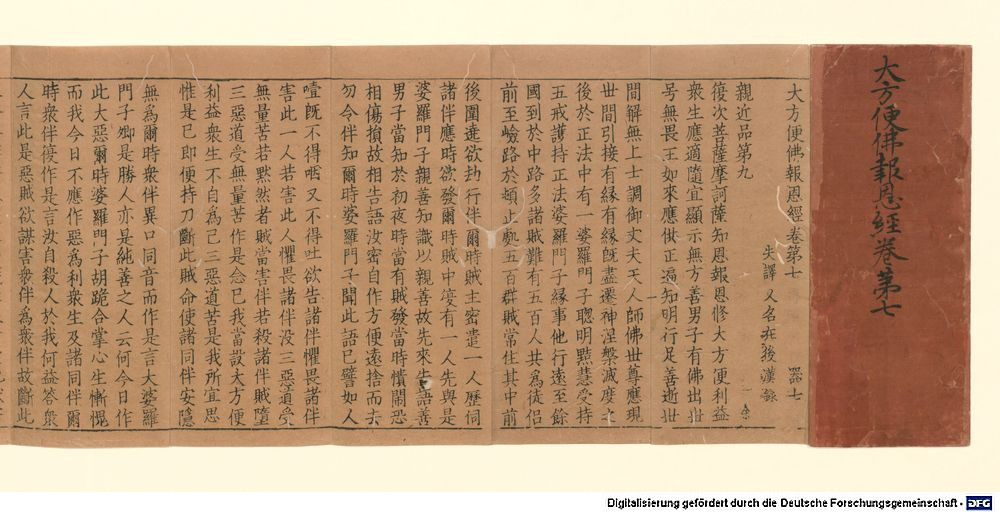 大方便佛報恩經卷第七
大方便佛報恩經卷第七 器七
失譯 又名在後漢錄
親近品第九
復次菩薩摩訶薩知恩報恩修大方便利益
衆生應適隨宜顯示無方善男子有佛出世
号無畏王如來應供正遍知明行足善逝世
間解無上士調御丈夫天人師佛世尊應現
世間引接有緣有緣旣盡遷神涅槃滅度之
後於正法中有一婆羅門子聦明黠慧受持
五戒護持正法婆羅門子緣事他行遠至餘
國到於中路多諸賊難有五百人共爲徒侶
前至嶮路於頓止𠩄五百群賊常住其中前
後圍遶欲劫行伴爾時賊主密遣一人歷伺
諸伴應時欲發爾時賊中復有一人先與是
婆羅門子親善知識以親善故先來告語善
男子當知於初夜時當有賊發當時憒鬧恐
相傷損故相告語汝密自作方便遠捨而去
勿令伴知爾時婆羅門子聞此語已譬如人
噎旣不得咽又不得吐欲告諸伴懼畏諸伴
害此一人若害此人懼畏諸伴没三惡道受
無量苦若默然者賊當害伴若殺諸伴賊墮
三惡道受無量苦作是念已我當設大方便
利益衆生不自爲己三惡道苦是我所宜思
惟是已即便持刀斷此賊命使諸同伴安隱
無爲爾時衆伴異口同音而作是言大婆羅
門子卿是勝人亦是純善之人云何今日作
此大惡爾時婆羅門子胡跪合掌心生慚愧
而我今日不應作惡爲利衆生及諸同伴爾
時衆伴復作是言汝自殺人於我何益答衆
人言此是惡賊欲謀害衆伴爲衆伴故斷此
Digitalisierung gefördert durch die Deutsche Forschungsgemeinschaft - DFG